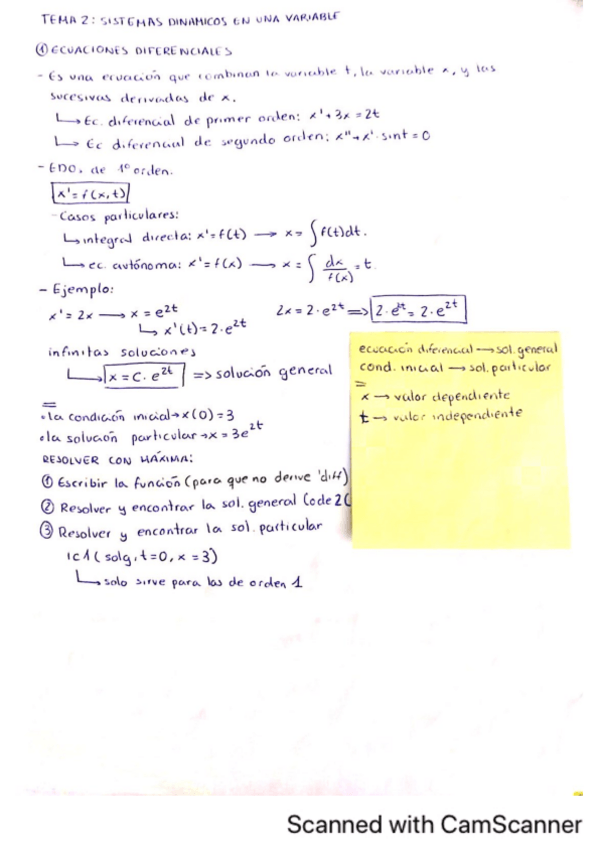 TEMA 2: SISTEMAS DINAMICOS EN UNA VARIABLE
① ECUACIONES DIFERENCIALES
- Es una ecuación que combinan la variable t, la variable x, y las
sucesivas derivadas de x.
↳ Ec. diferencial de primer orden: x'+3x=2t
↳ Ec diferencial de segundo orden: x''+x'·sint=0
- EDO. de 1º orden.
x'=f(x,t)
- Casos particulares:
↳ integral directa: x'=f(t) → x= ∫f(t)dt.
↳ ec. autónoma: x'=f(x) → x= ∫ dx/f(x) = t
- Ejemplo:
x'=2x → x=e^2t 2x=2·e^2t => 2·e^2t=2·e^2t
↳ x'(t)=2·e^2t
infinitas soluciones
↳ x=C·e^2t => solución general
=
• la condición inicial → x(0)=3
• la solución particular → x=3e^2t
RESOLVER CON MÁXIMA:
① Escribir la función (para que no derive 'diff)
② Resolver y encontrar la sol. general (ode2(
③ Resolver y encontrar la sol. particular
ic1(solg, t=0, x=3)
↳ solo sirve para las de orden 1
ecuación diferencial → sol. general
cond. inicial → sol. particular
=
x → valor dependiente
t → valor independiente
Scanned with CamScanner